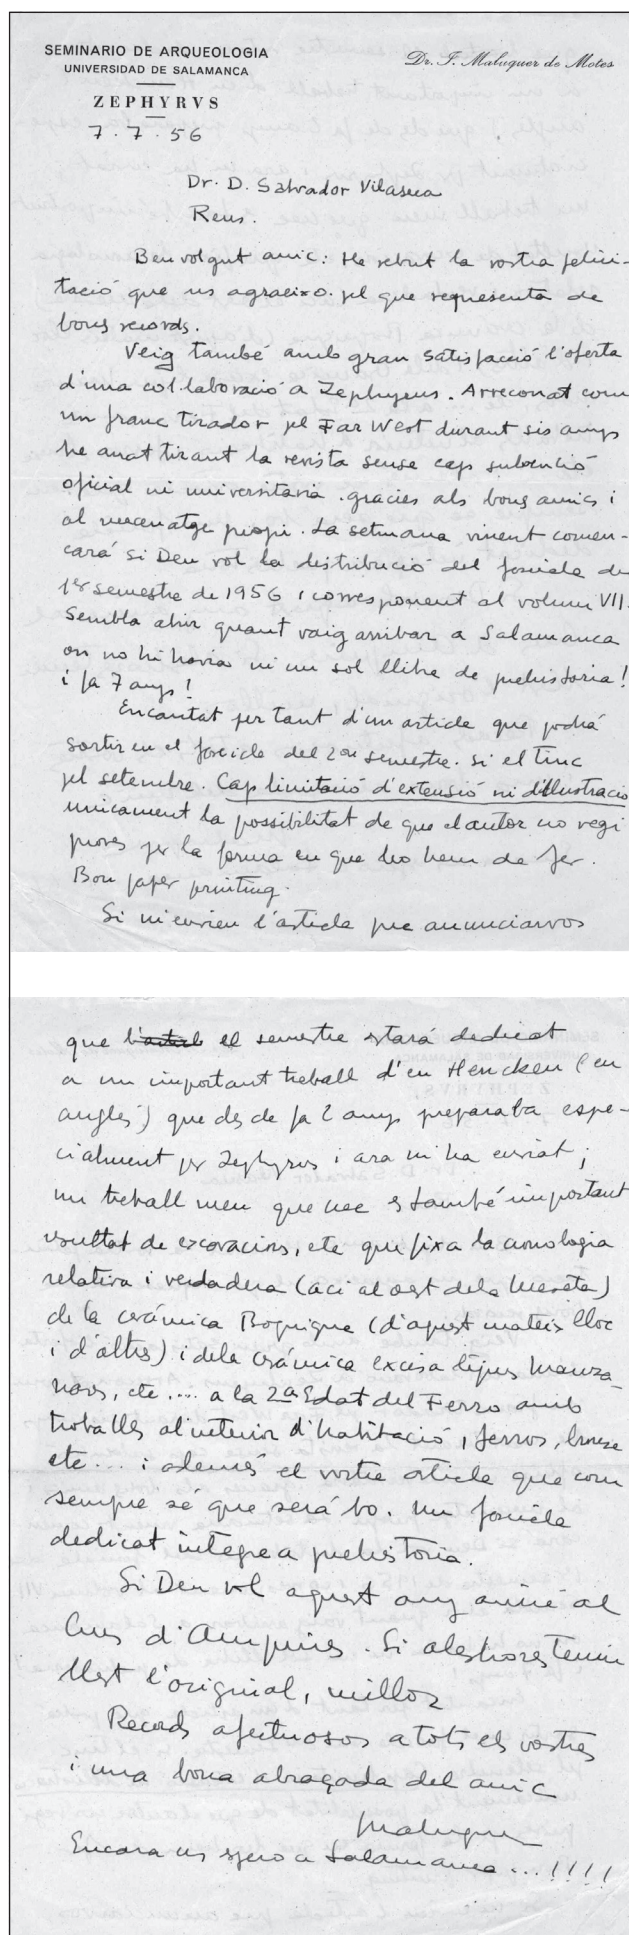 SEMINARIO DE ARQUEOLOGIA
UNIVERSIDAD DE SALAMANCA
ZEPHYRVS
Dr. J. Maluquer de Motes
7.7.56
Dr. D. Salvador Vilaseca
Reus.
Benvolgut amic: He rebut la vostra felici-
tació que us agraeixo pel que representa de
bons records.
Veig també amb gran satisfacció l'oferta
d'una col·laboració a Zephyrus. Arreconat com
un franc tirador pel Far West durant sis anys
he anat tirant la revista sense cap subvenció
oficial ni universitaria. gracies als bons amics i
al mecenatge propi. La setmana vinent comen-
cará si Deu vol la distribució del fascicle de
1er semestre de 1956 i corresponent al volum VII.
Sembla ahir quant vaig arribar a Salamanca
on no hi havia ni un sol llibre de prehistoria!
i fa 7 anys!
Encantat per tant d'un article que podrá
sortir en el fascicle del 2on semestre. si el tinc
pel setembre. Cap limitació d'extensió ni d'illustració
unicament la possibilitat de que el autor no vegi
proves per la forma en que ho hem de fer.
Bon paper printing.
Si m'envieu l'article puc anunciarvos
que el semestre estará dedicat
a un important treball d'en Hencken (en
angles) que des de fa 2 anys preparaba espe-
cialment per Zephyrus i ara m'ha enviat;
un treball meu que crec es també important
resultat de excavacions, etc que fixa la cronologia
relativa i verdadera (aci al oest dela Meseta)
de la cerámica Boquique (d'aquest mateix lloc
i d'altres) i dela cerámica excisa tipus Manza-
nares, etc.... a la 2a Edat del Ferro amb
troballes al interior d'habitació, ferros, bronze
etc... i ademés el vostre article que com
sempre sé que será bo. Un fascicle
dedicat integre a prehistoria.
Si Deu vol aquest any aniré al
Curs d'Ampuries. Si aleshores teniu
llest l'original, millor
Records afectuosos a tots els vostres
i una bona abraçada del amic
Maluquer
Encara us espero a Salamanca...!!!!